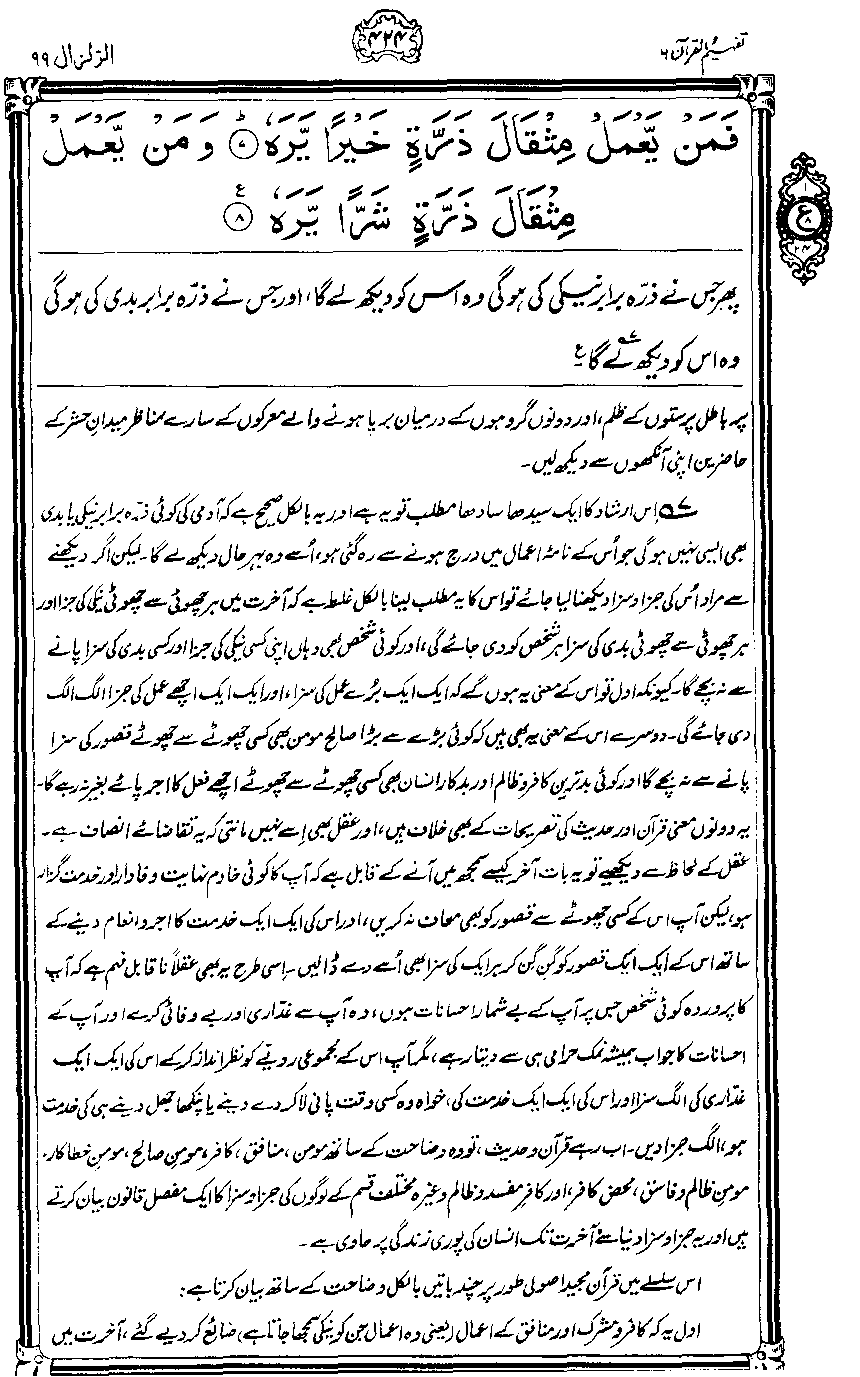 تفہیم القرآن ۶
۴۲۴
الزلزال ۹۹
فَمَنْ يَّعْمَلْ مِثْقَالَ ذَرَّةٍ خَيْرًا يَّرَهٗ ؕ ﴿۷﴾ وَ مَنْ يَّعْمَلْ
مِثْقَالَ ذَرَّةٍ شَرًّا يَّرَهٗ ﴿۸﴾ ع
۱
ع
۸
۲۴
پھر جس نے ذرّہ برابر نیکی کی ہوگی وہ اس کو دیکھ لے گا، اور جس نے ذرّہ برابر بدی کی ہوگی
وہ اس کو دیکھ لے گا۷ ع
پر باطل پرستوں کے ظلم، اور دونوں گروہوں کے درمیان برپا ہونے والے معرکوں کے سارے مناظر میدانِ حشر کے
حاضرین اپنی آنکھوں سے دیکھ لیں۔
۷؎ اس ارشاد کا ایک سیدھا سادھا مطلب تو یہ ہے اور یہ بالکل صحیح ہے کہ آدمی کی کوئی ذرّہ برابر نیکی یا بدی
بھی ایسی نہیں ہوگی جو اُس کے نامۂ اعمال میں درج ہونے سے رہ گئی ہو، اُسے وہ بہرحال دیکھ لے گا۔ لیکن اگر دیکھنے
سے مراد اُس کی جزا و سزا دیکھنا لیا جائے تو اس کا یہ مطلب لینا بالکل غلط ہے کہ آخرت میں ہر چھوٹی سے چھوٹی نیکی کی جزا اور
ہر چھوٹی سے چھوٹی بدی کی سزا ہر شخص کو دی جائے گی، اور کوئی شخص بھی وہاں اپنی کسی نیکی کی جزا اور کسی بدی کی سزا پانے
سے نہ بچے گا۔ کیونکہ اول تو اس کے معنی یہ ہوں گے کہ ایک ایک بُرے عمل کی سزا، اور ایک ایک اچھے عمل کی جزا الگ الگ
دی جائے گی۔ دوسرے اس کے معنی یہ بھی ہیں کہ کوئی بڑے سے بڑا صالح مومن بھی کسی چھوٹے سے چھوٹے قصور کی سزا
پانے سے نہ بچے گا اور کوئی بدترین کافر و ظالم اور بدکار انسان بھی کسی چھوٹے سے چھوٹے اچھے فعل کا اجر پائے بغیر نہ رہے گا۔
یہ دونوں معنی قرآن اور حدیث کی تصریحات کے بھی خلاف ہیں، اور عقل بھی اِسے نہیں مانتی کہ یہ تقاضائے انصاف ہے۔
عقل کے لحاظ سے دیکھیے تو یہ بات آخر کیسے سمجھ میں آنے کے قابل ہے کہ آپ کا کوئی خادم نہایت وفادار اور خدمت گزار
ہو، لیکن آپ اس کے کسی چھوٹے سے قصور کو بھی معاف نہ کریں، اور اس کی ایک ایک خدمت کا اجر و انعام دینے کے
ساتھ اس کے ایک ایک قصور کو گن گن کر ہر ایک کی سزا بھی اُسے دے ڈالیں۔ اِسی طرح یہ بھی عقلاً ناقابل فہم ہے کہ آپ
کا پروردہ کوئی شخص جس پر آپ کے بے شمار احسانات ہوں، وہ آپ سے غدّاری اور بے وفائی کرے اور آپ کے
احسانات کا جواب ہمیشہ نمک حرامی ہی سے دیتا رہے، مگر آپ اس کے مجموعی رویّے کو نظر انداز کر کے اس کی ایک ایک
غدّاری کی الگ سزا اور اس کی ایک ایک خدمت کی، خواہ وہ کسی وقت پانی لا کر دے دینے یا پنکھا جھل دینے ہی کی خدمت
ہو، الگ جزا دیں۔ اب رہے قرآن و حدیث، تو وہ وضاحت کے ساتھ مومن، منافق، کافر، مومنِ صالح، مومنِ خطاکار،
مومنِ ظالم و فاسق، محض کافر، اور کافرِ مفسد و ظالم وغیرہ مختلف قسم کے لوگوں کی جزا و سزا کا ایک مفصل قانون بیان کرتے
ہیں اور یہ جزا و سزا دنیا سے آخرت تک انسان کی پوری زندگی پر حاوی ہے۔
اس سلسلے میں قرآن مجید اصولی طور پر چند باتیں بالکل وضاحت کے ساتھ بیان کرتا ہے:
اول یہ کہ کافر و مشرک اور منافق کے اعمال (یعنی وہ اعمال جن کو نیکی سمجھا جاتا ہے) ضائع کر دیے گئے، آخرت میں